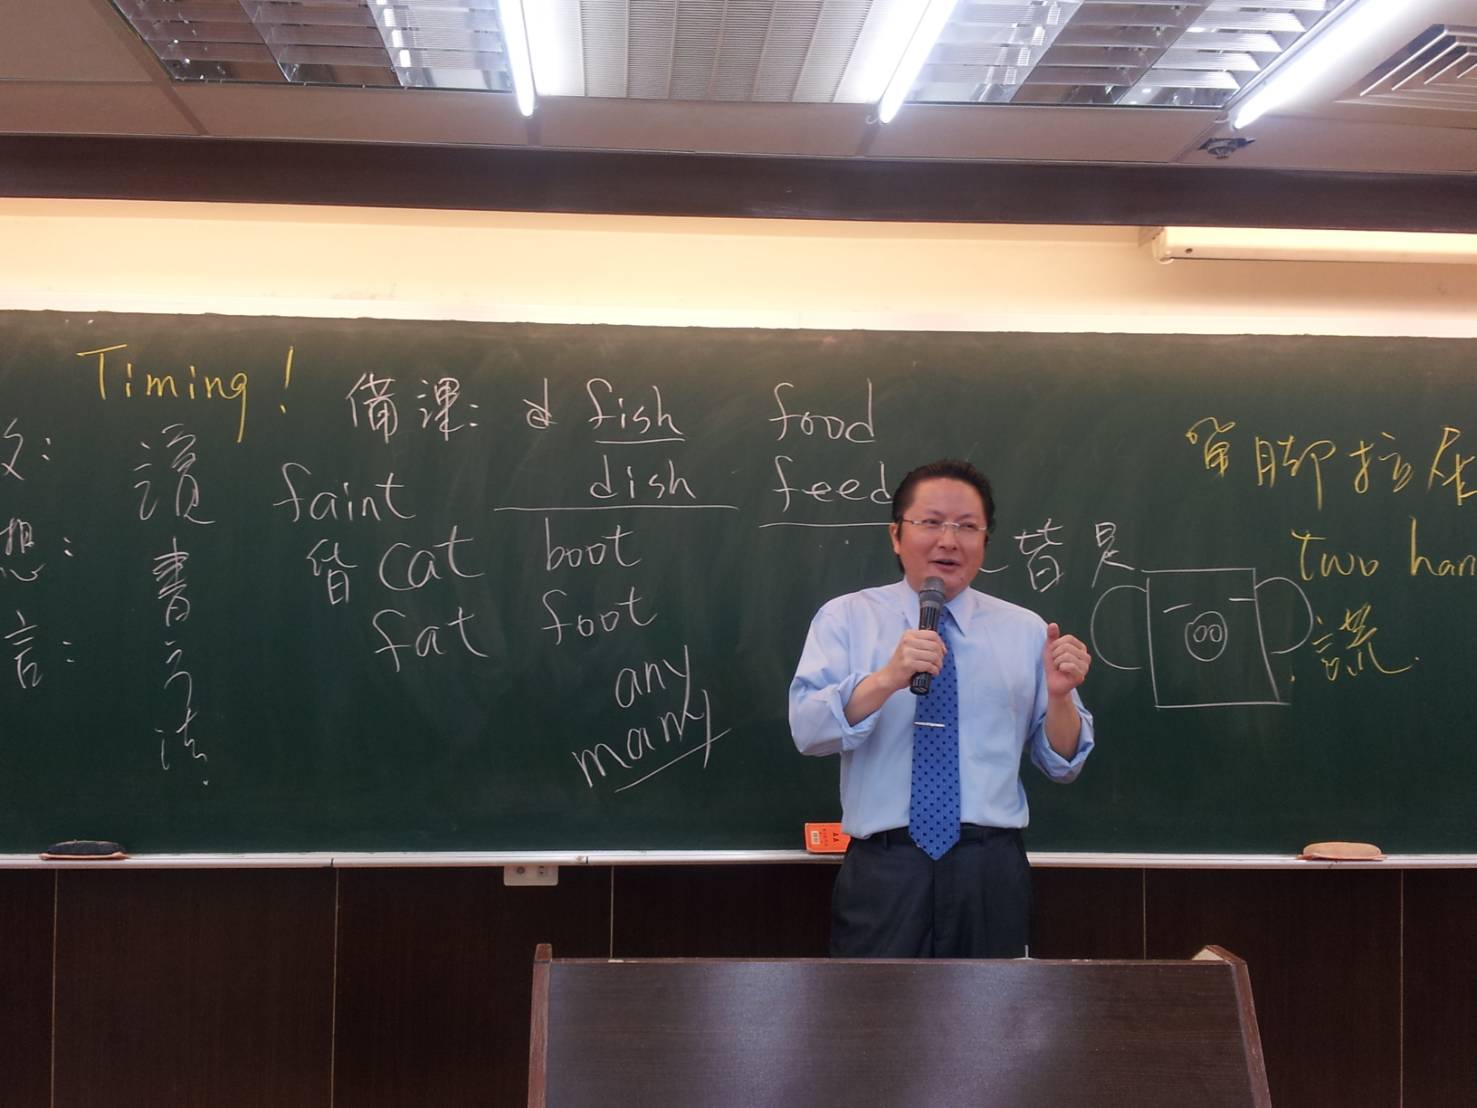 Timing!
文:
想:
言:
讀書方法.
備課: d fish food
faint dish feed
皆 cat boot
fat foot
any
many
皆是
單脚拉
two han
謊.